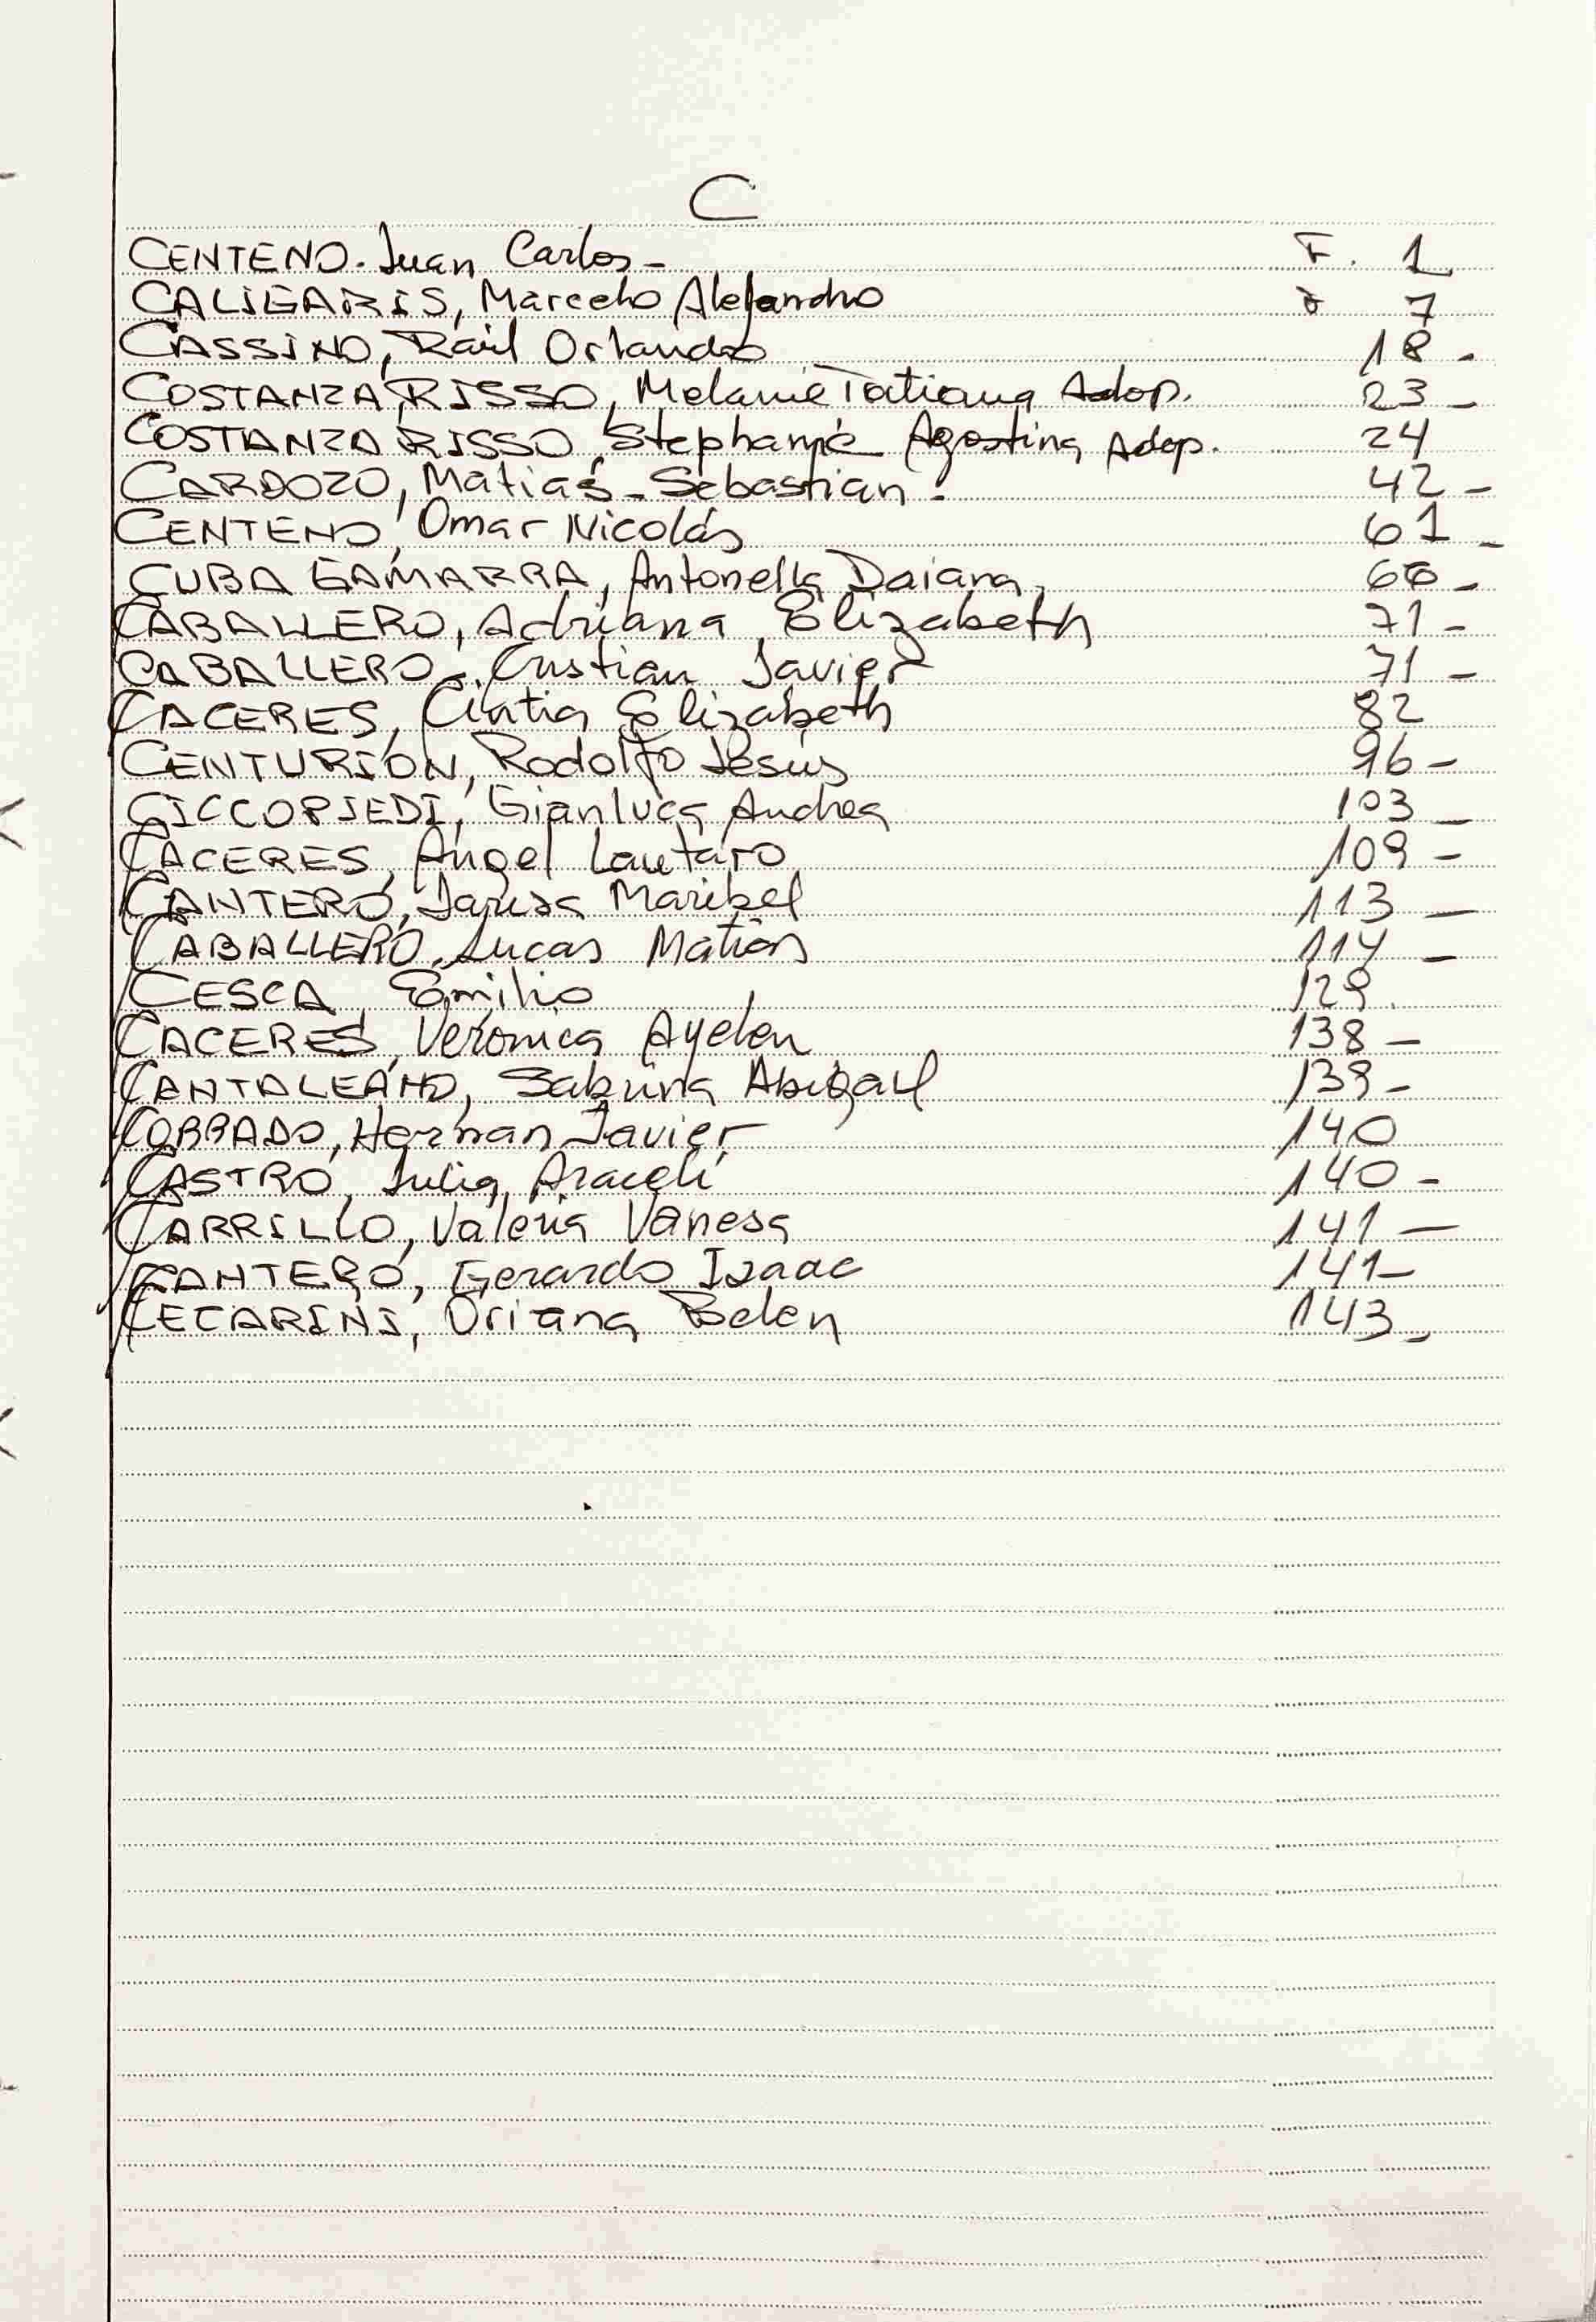 C
CENTENO. Juan Carlos - F. 1
CALIGARIS, Marcelo Alejandro F 7
CASSINO, Raúl Orlando 18 -
COSTANZA RISSO, Melanie Tatiana Adop. 23 -
COSTANZA RISSO, Stephanie Agostina Adop. 24
CARDOZO, Matias - Sebastian. 42 -
CENTENO, Omar Nicolás 61 -
CUBA GAMARRA, Antonella Daiana, 66 -
CABALLERO, Adriana Elizabeth 71 -
CABALLERO -, Cristian Javier 71 -
CACERES, Cintia Elizabeth 82
CENTURIÓN, Rodolfo Jesús 96 -
CICCOPIEDI, Gianluca Andrea 103 -
CACERES, Angel Lautaro 109 -
CANTERO, Maribel 113 -
CABALLERO, Lucas Matias 114 -
CESCA Emilio 129.
CACERES, Verónica Ayelen 138 -
CANTALEANO, Sabrina Abigail 139 -
CORRADO, Hernan Javier 140
CASTRO, Julia Araceli 140 -
CARRILLO, Valeria Vanesa 141 -
CANTERO, Gerardo Isaac 141 -
CECARINI, Oriana Belen 143 -